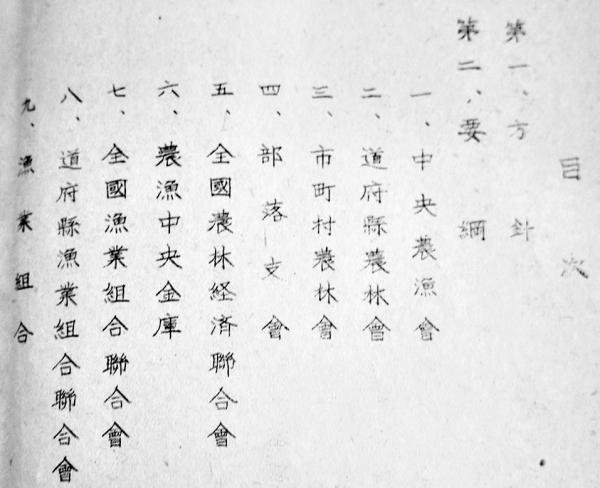 目次
第一、方針
第二、要綱
一、中央農漁會
二、道府縣農林會
三、市町村農林會
四、部落支會
五、全國農林経済聯合會
六、農漁中央金庫
七、全國漁業組合聯合會
八、道府縣漁業組合聯合會
九、漁業組合